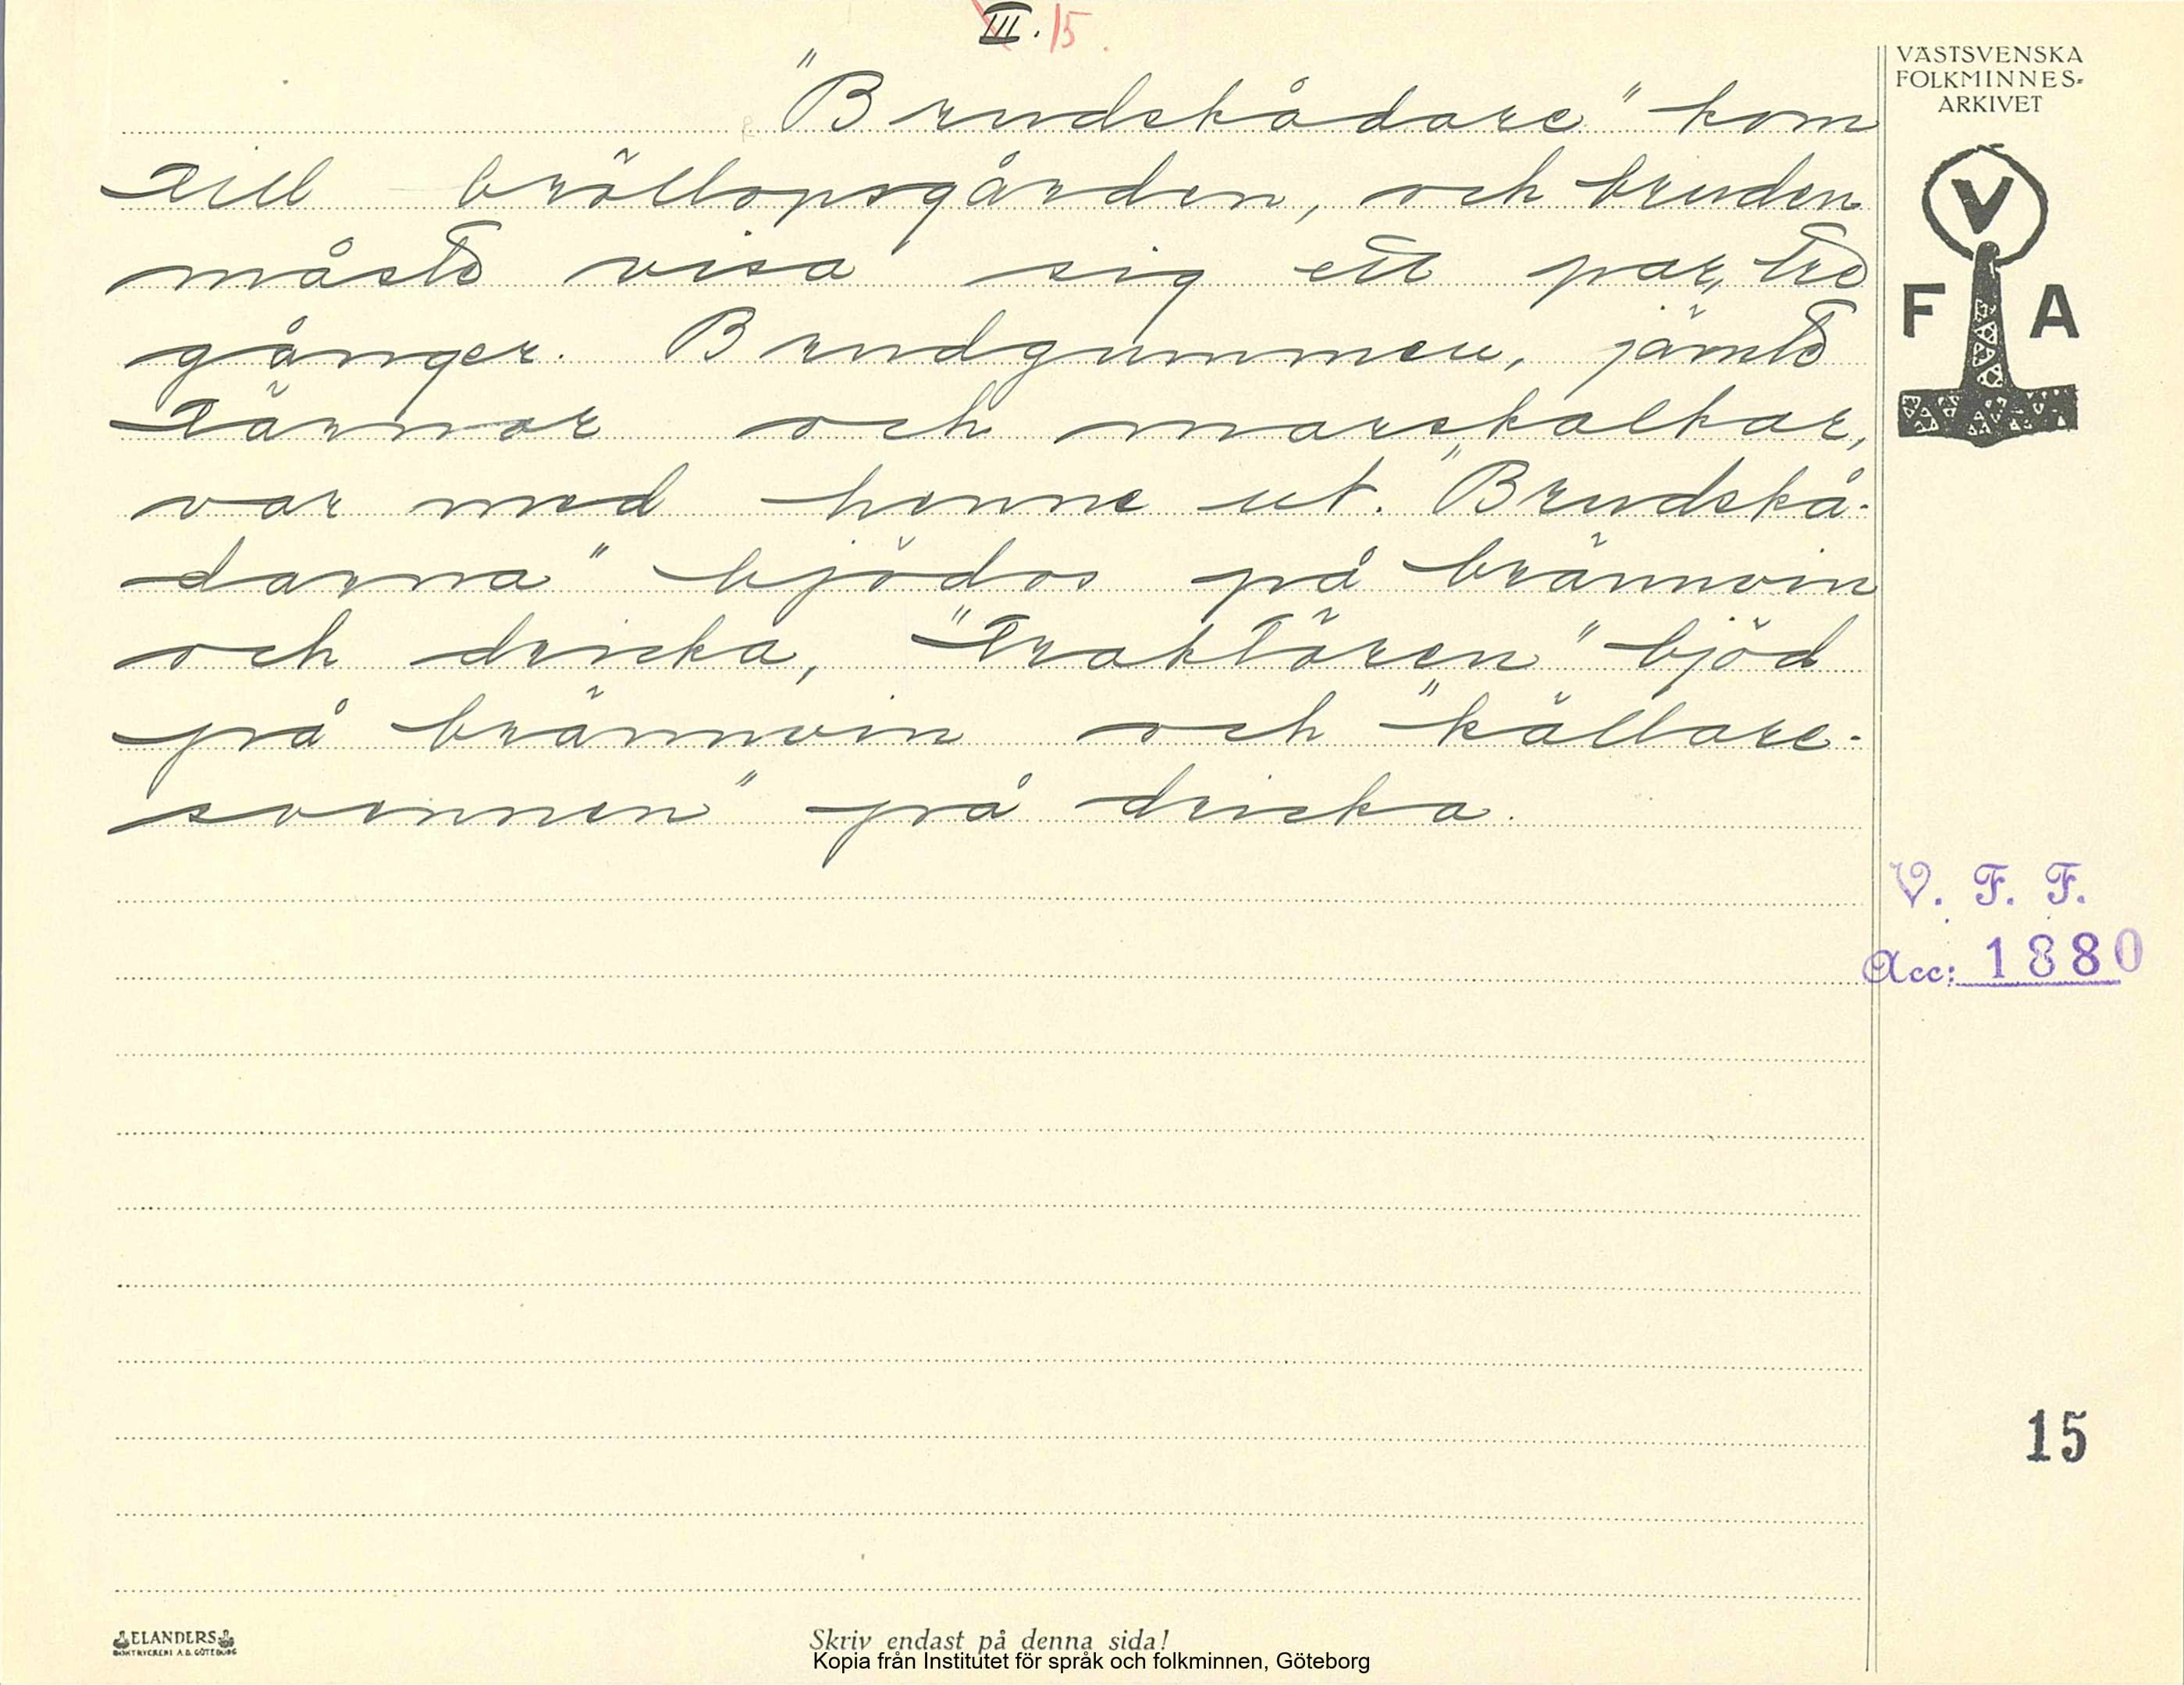 III. 15.
VÄSTSVENSKA
FOLKMINNES-
ARKIVET
V
F A
"Brudskådare" kom
till bröllopsgården, och bruden
måste visa sig ett par, tre
gånger. Brudgummen, jämte
tärnor och marskalkar,
var med henne ut. "Brudskå-
darna" bjödos på brännvin
och dricka, "Traktören" bjöd
på brännvin och "källare-
svennen" på dricka.
V. F. F.
Acc: 1880
15
ELANDERS
BOKTRYCKERI A.B. GÖTEBORG
Skriv endast på denna sida!
Kopia från Institutet för språk och folkminnen, Göteborg